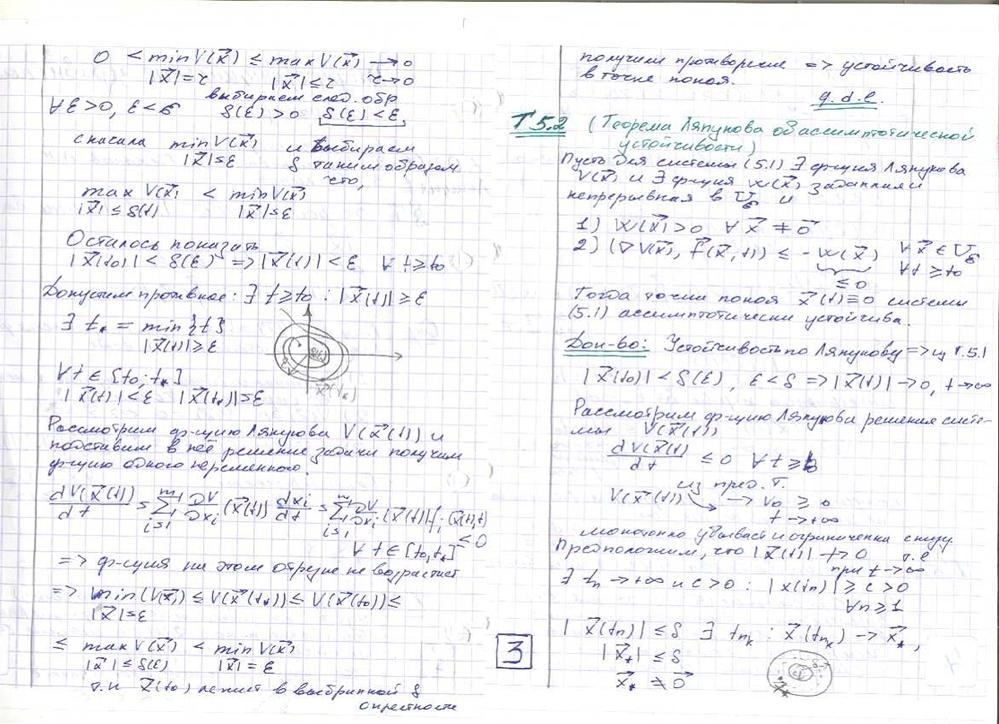 0 < min V(x⃗) ≤ max V(x⃗) → 0
|x⃗|=τ |x⃗|≤τ τ→0
выбираем след. обр.
∀ε>0, ε<σ δ(ε)>0 δ(ε)<ε
сначала min V(x⃗) и выбираем
|x⃗|=ε δ таким образом
что,
max V(x⃗) < min V(x⃗)
|x⃗|≤δ(t) |x⃗|=ε
Осталось показать
|x⃗(t₀)| < δ(ε) => |x⃗(t)| < ε ∀ t≥t₀
Допустим противное: ∃ t≥t₀ : |x⃗(t)| ≥ ε
∃ t* = min{t}
|x⃗(t)|≥ε
δ(ε)
x⃗(t*)
∀t ∈ [t₀; t*]
|x⃗(t)|<ε |x⃗(t*)|=ε
Рассмотрим ф-цию Ляпунова V(x⃗(t)) и
подставим в неё решение задачи получим
ф-цию одного переменного.
dV(x⃗(t))/dt = Σ ∂V/∂xᵢ (x⃗(t)) dxᵢ/dt = Σ ∂V/∂xᵢ (x⃗(t)) fᵢ(x⃗(t),t)
≤0
∀t∈[t₀,t*]
=> ф-ция на этом отрезке не возрастает
=> min(V(x⃗)) ≤ V(x⃗(t*)) ≤ V(x⃗(t₀)) ≤
|x⃗|=ε
≤ max V(x⃗) < min V(x⃗)
|x⃗|≤δ(ε) |x⃗|=ε
т.к x⃗(t₀) лежит в выбранной δ
окрестности
получили противоречие => устойчивость
в точке покоя.
q.d.e.
Т 5.2 (Теорема Ляпунова об ассимптотической
устойчивости)
Пусть для системы (5.1) ∃ ф-ция Ляпунова
V(x⃗) и ∃ ф-ция w(x⃗) заданная и
непрерывная в U и
1) W(x⃗)>0 ∀ x⃗ ≠ 0⃗
2) (∇V(x⃗), f⃗(x⃗,t)) ≤ -w(x⃗) ∀ x⃗ ∈ U
≤0 ∀t≥t₀
Тогда точки покоя x⃗(t)≡0 системы
(5.1) ассимптотически устойчива.
Док-во: Устойчивость по Ляпунову => из Т.5.1
|x⃗(t₀)| < δ(ε), ε<δ => |x⃗(t)| → 0, t→∞
Рассмотрим ф-цию Ляпунова решения систе-
мы V(x⃗(t))
dV(x⃗(t))/dt ≤ 0 ∀t≥t₀
из пред. т.
V(x⃗(t)) → V₀ ≥ 0
t→+∞
монотонно убывает и ограничена снизу.
Предположим, что |x⃗(t)| ↛ 0 т.е
при t→∞
∃ tn → +∞ и c>0 : |x(tn)| ≥ c > 0
∀n≥1
|x⃗(tn)| ≤ δ ∃ tnₖ : x⃗(tnₖ) → x⃗*,
|x⃗*| ≤ δ
x⃗* ≠ 0⃗
3